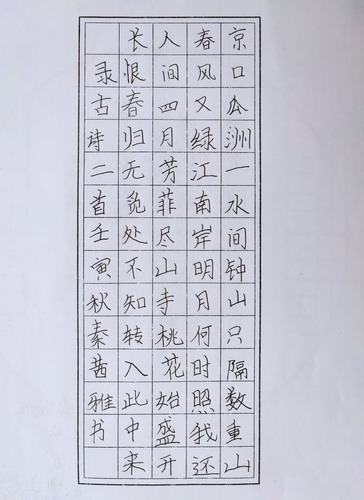 京口瓜洲一水间钟山只隔数重山
春风又绿江南岸明月何时照我还
人间四月芳菲尽山寺桃花始盛开
长恨春归无觅处不知转入此中来
录古诗二首壬寅秋秦茜雅书